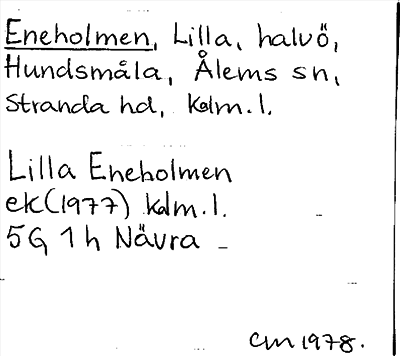 Eneholmen, Lilla, halvö,
Hundsmåla, Ålems sn,
Stranda hd, Kalm. l.
Lilla Eneholmen
ek(1977) Kalm. l.
5G 1h Nävra
CM 1978.